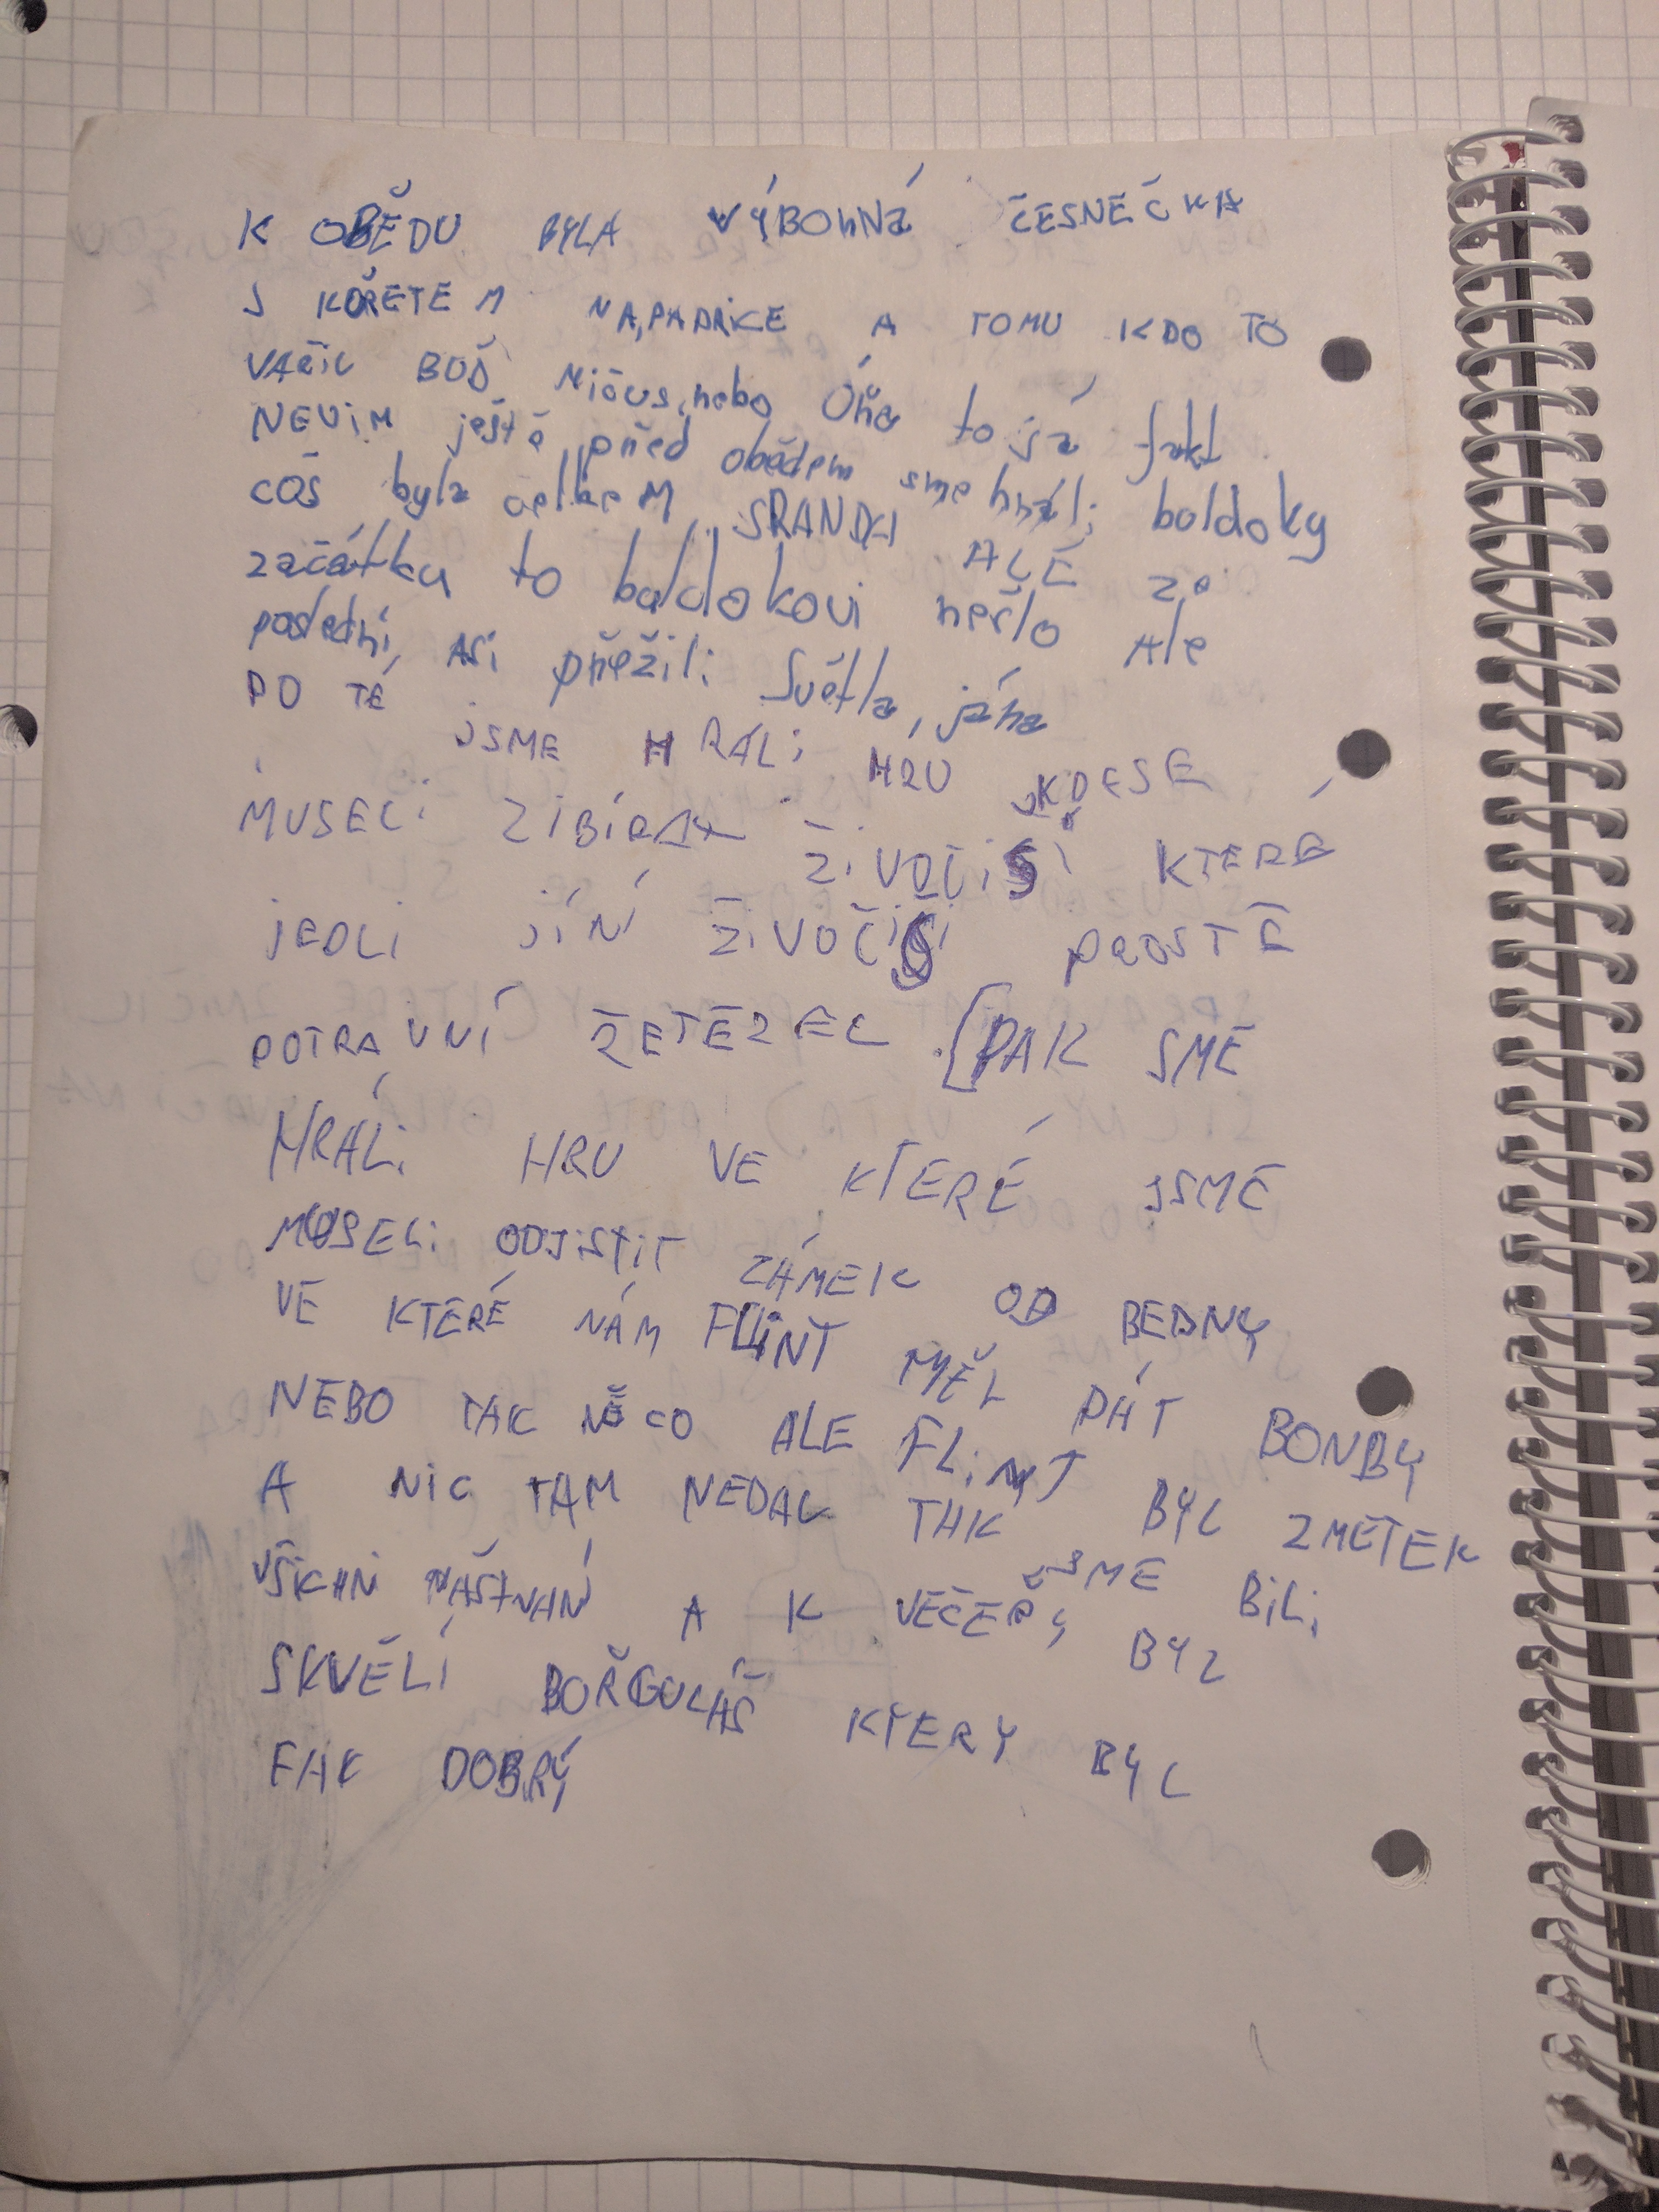 K OBĚDU BYLA VÝBOHNÁ ČESNEČKA
S KOŘETEM NA,PADRICE A TOMU KDO TO
VAŘIL BUĎ Mičus,nebo Óňa to já fakt
NEVIM ještě před obědem sme hráli boldoky
COŠ byla celkeM SRANDA ALE ZE
začátku to buldokovi nešlo Ale
poslední, ASi přežili Světla, jáha
PO TÉ JSME HRÁLi HRU KDESE
MUSELi ZIBÍRAt ŽiVOČiŠi KTERÉ
JEDLi JÍNÍ ŽiVOČiŠi PROSTĚ
POTRAVNÍ ŽETĚZEC [PAK SME
HRÁLi HRU VE KTERÉ JSME
MUSELi ODJiSTiT ZÁMEK OD BEDNY
VE KTERÉ NÁM FLiNT MYĚL DÁT BONBY
NEBO TAK NĚCO ALE FLiNT BYL ZMETEK
A NiC TAM NEDAL TAK SME BiLi
VŠiCHNi NAŠtVANÍ A K VEČEŘY BYL
SKVĚLÍ BOŘGULÁŠ KTERY BYL
FAK DOBRÝ